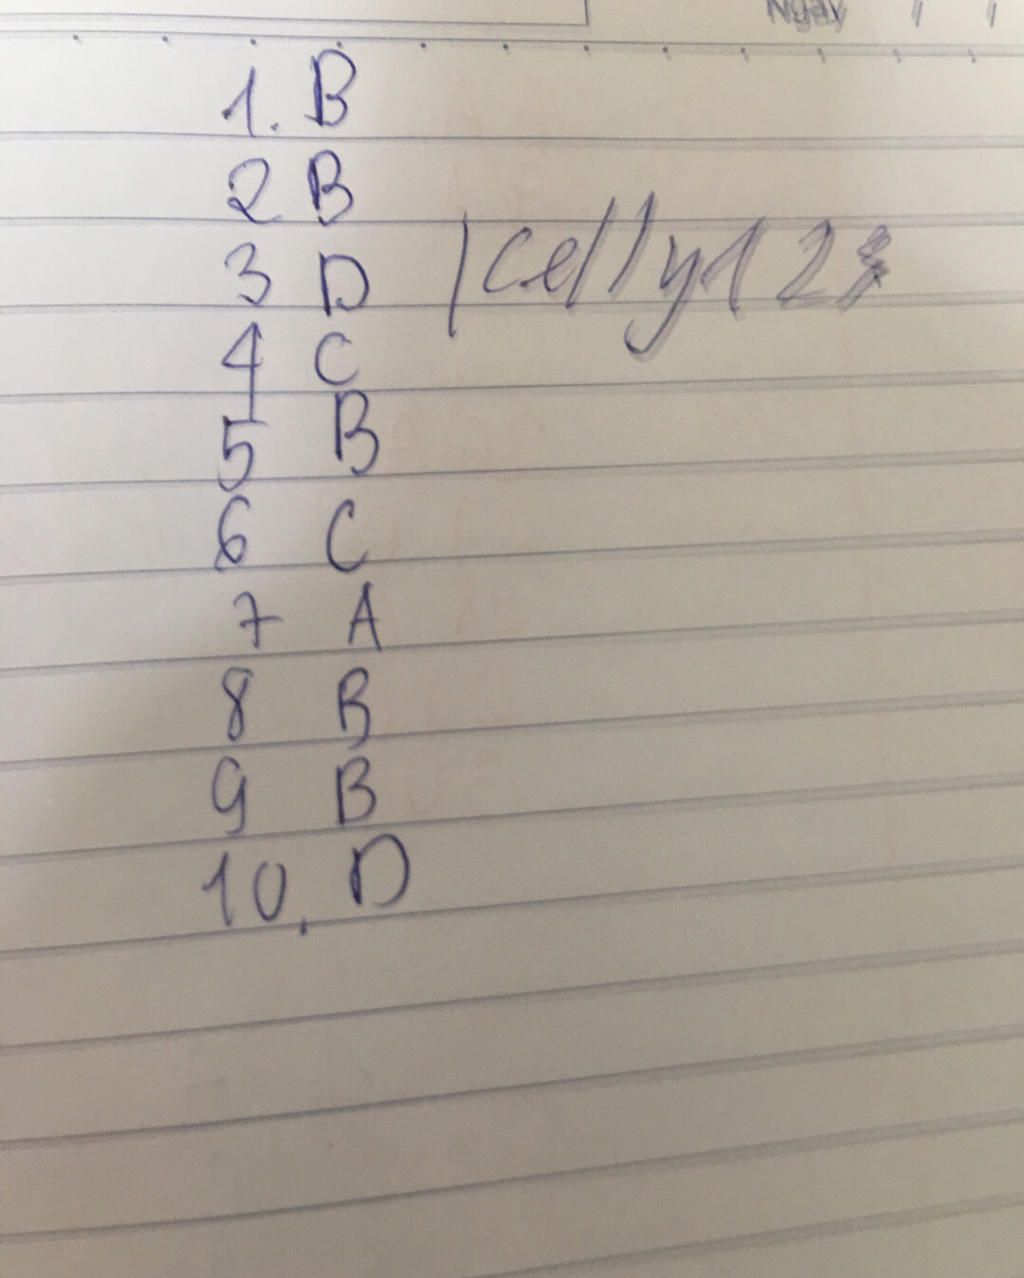 Ngày / /
1. B
2 B
3 D
Kelly123
4 C
5 B
6 C
7 A
8 B
9 B
10. D